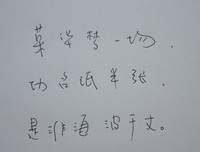 荣华梦一场，
功名纸半张，
是非海波千丈。